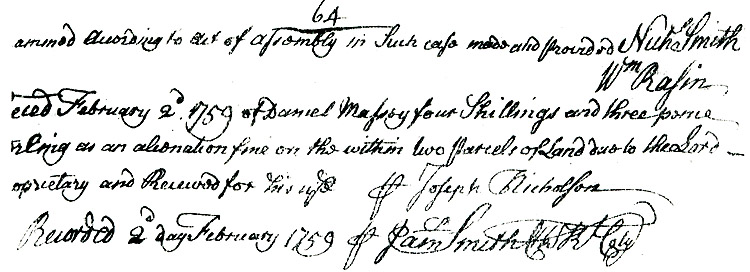 64
amined according to act of assembly in Such case made and provided Nichs Smith
Wm Rasin
eived February 2d. 1759 of Daniel Massey four Shillings and three pence
rling as an alienation fine on the within two Parcels of Land due to the Lord
oprietary and Received for his use Joseph Nicholson
Recorded 2d day February 1759 Smith